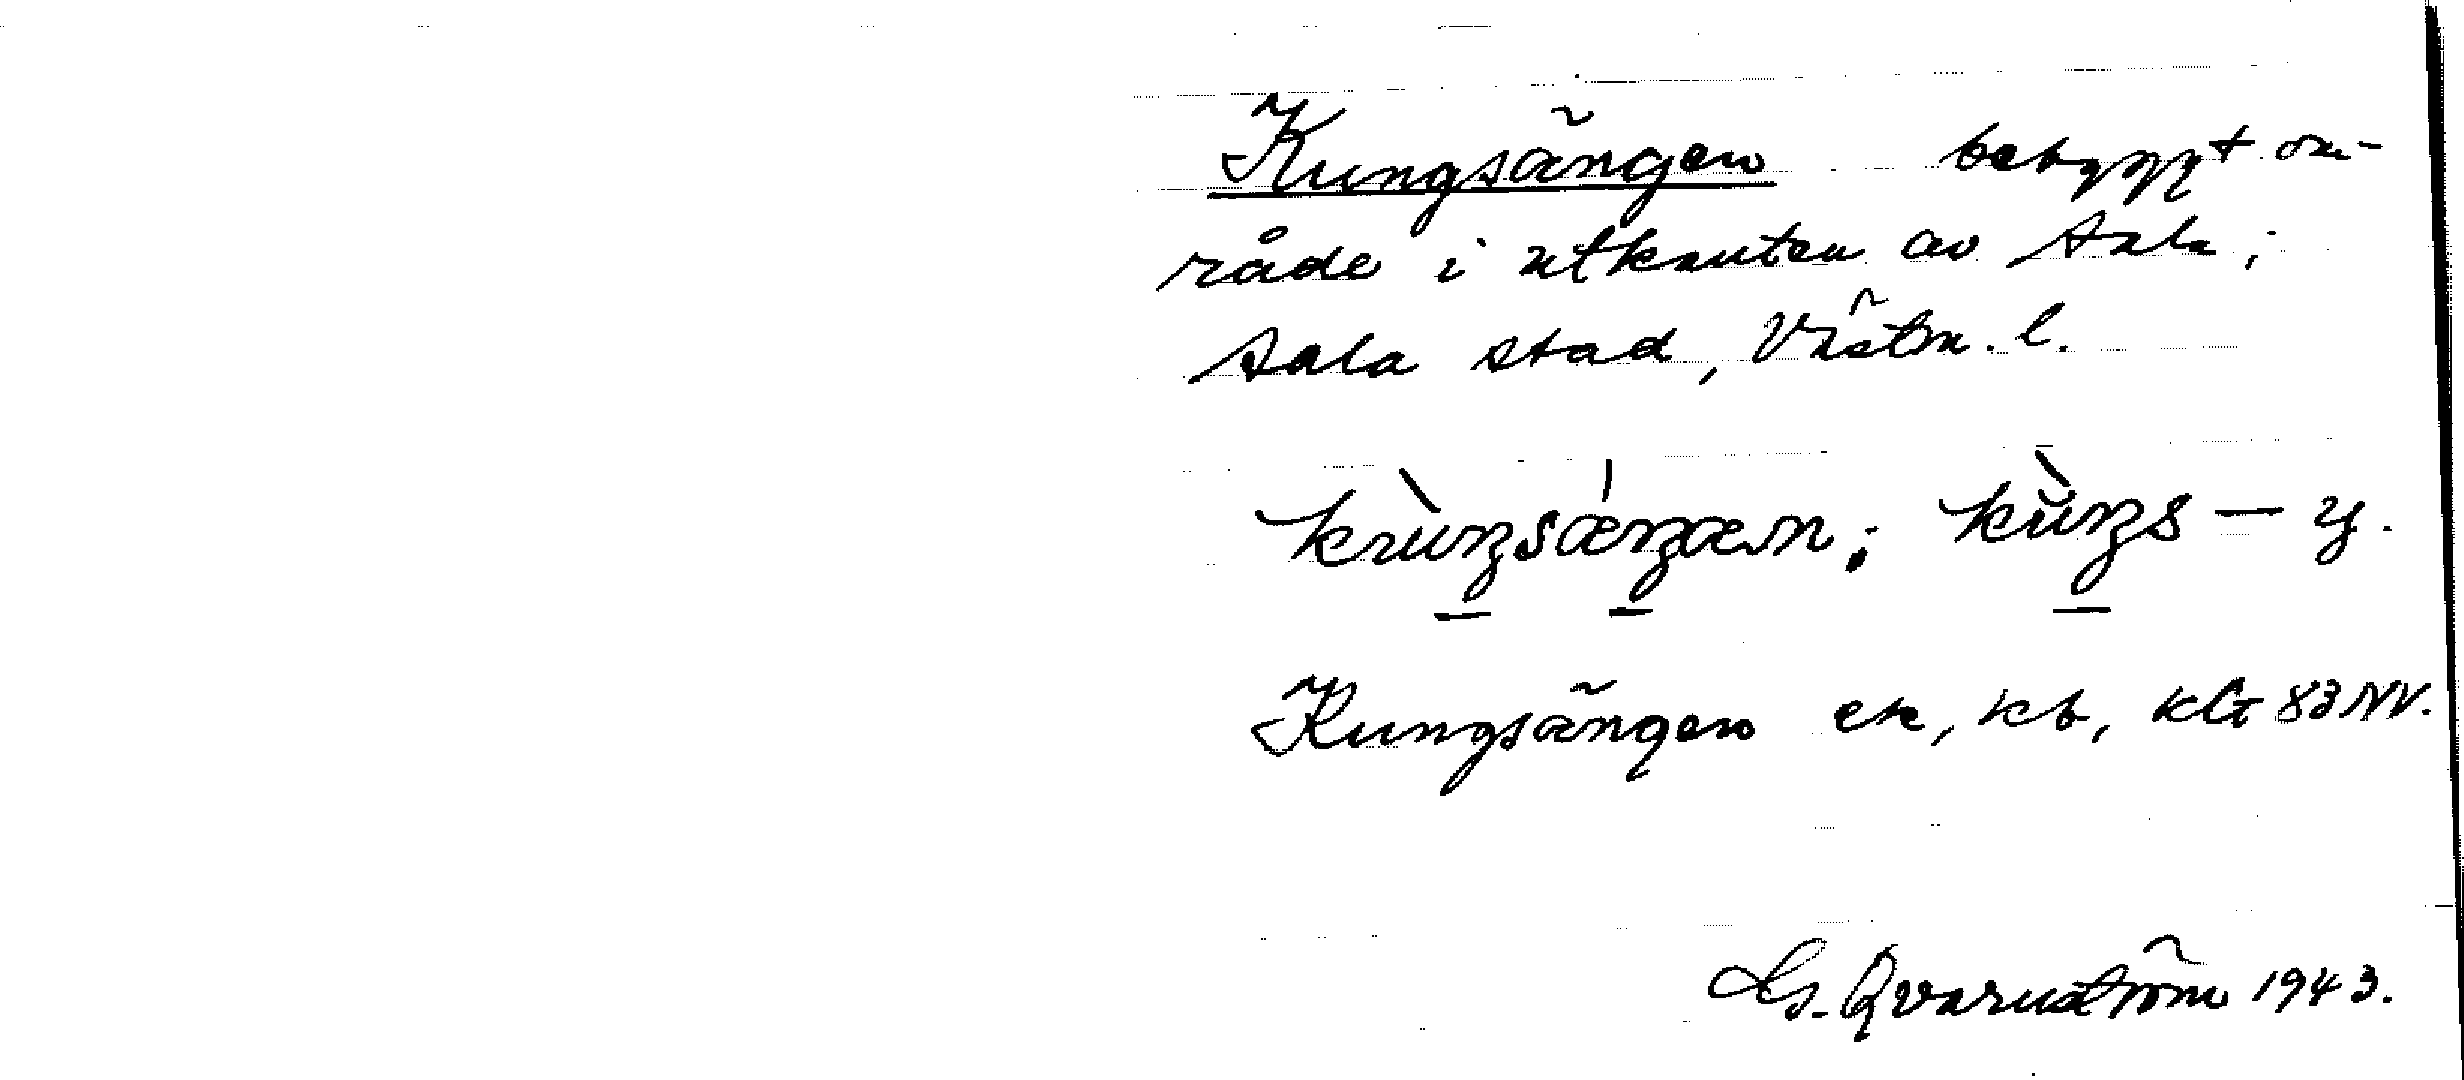 Kungsängen bebyggt om-
råde i utkanten av Sala;
Sala stad, Västm. l.
kùŋsǽŋæn; kùŋs – y.
Kungsängen ek, kb, kbt 83 NV.
G. Qvarnström 1943.